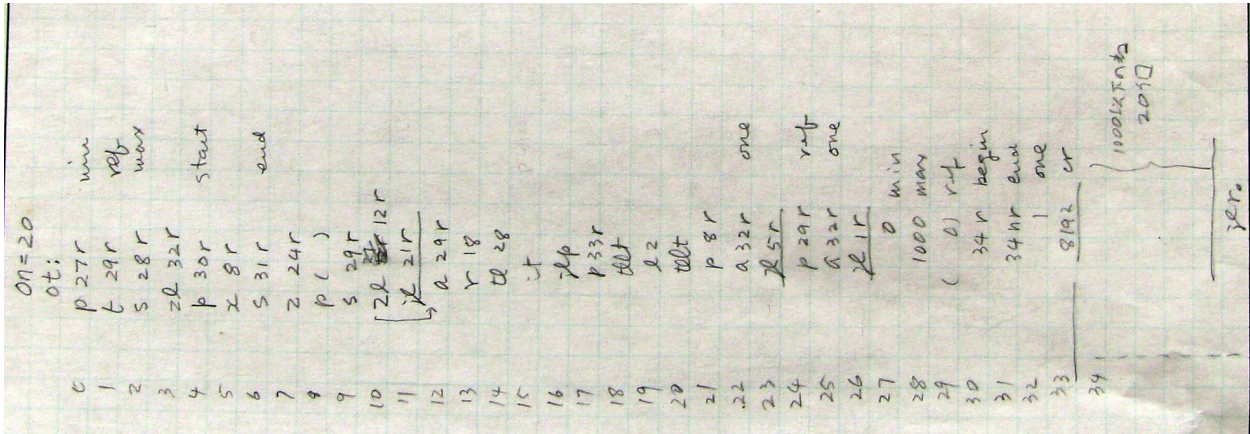 0n=20
0t:
0 p 27r min
1 t 29r ref
2 s 28r max
3 zl 32r
4 p 30r start
5 x 8r
6 s 31r end
7 z 24r
8 p ( )
9 s 29r
10 zl 12r
11 jl 21r
12 a 29r
13 r 18
14 tl 28
15 it
16 jlp
17 p 33r
18 tllt
19 l 2
20 tllt
21 p 8r
22 a 32r one
23 jl 5r
24 p 29r ref
25 a 32r one
26 jl 1r
27 0 min
28 1000 max
29 ( 0) ref
30 34r begin
31 34nr end
32 1 one
33 8192 cr
34
20行
jer0